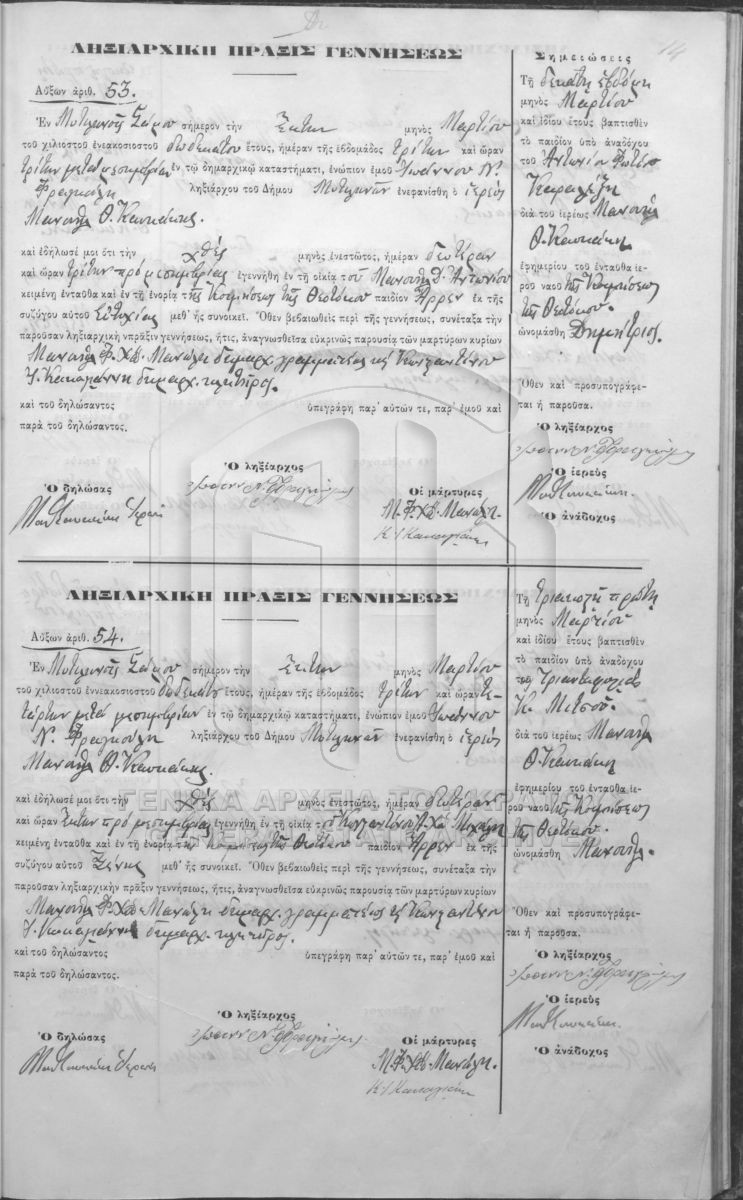 14
ΛΗΞΙΑΡΧΙΚΗ ΠΡΑΞΙΣ ΓΕΝΝΗΣΕΩΣ
Αὔξων ἀριθ. 53.
Ἐν Μυτιληνοῖς Σάμου σήμερον τὴν Ἕκτην μηνὸς Μαρτίου
τοῦ χιλιοστοῦ ἐννεακοσιοστοῦ δωδεκάτου ἔτους, ἡμέραν τῆς ἑβδομάδος τρίτην καὶ ὥραν
τρίτην μετὰ μεσημβρίαν ἐν τῷ δημαρχικῷ καταστήματι, ἐνώπιον ἐμοῦ Ἰωάννου Ν.
Φραγκούλη ληξιάρχου τοῦ Δήμου Μυτιληνῶν ἐνεφανίσθη ὁ ἱερεὺς
Μανουὴλ Θ.
καὶ ἐδήλωσέ μοι ὅτι τὴν χθὲς μηνὸς ἐνεστῶτος, ἡμέραν δευτέραν
καὶ ὥραν τρίτην πρὸ μεσημβρίας ἐγεννήθη ἐν τῇ οἰκίᾳ τοῦ Μανουὴλ Δ. Ἀντωνίου
κειμένῃ ἐνταῦθα καὶ ἐν τῇ ἐνορίᾳ τῆς Κοιμήσεως τῆς Θεοτόκου παιδίον Ἄρρεν ἐκ τῆς
συζύγου αὐτοῦ Εὐτυχίας μεθ᾽ ἧς συνοικεῖ. Ὅθεν βεβαιωθεὶς περὶ τῆς γεννήσεως, συνέταξα τὴν
παροῦσαν ληξιαρχικὴν πρᾶξιν γεννήσεως, ἥτις, ἀναγνωσθεῖσα εὐκρινῶς παρουσίᾳ τῶν μαρτύρων κυρίων
Μανουὴλ Φ. Χδ. Μανώλη δημαρχ. γραμματέως καὶ Κωνσταντίνου
Ι. δημαρχ. κλητῆρος.
καὶ τοῦ δηλώσαντος ὑπεγράφη παρ᾽ αὐτῶν τε, παρ᾽ ἐμοῦ καὶ
παρὰ τοῦ δηλώσαντος.
Ὁ δηλώσας
Ὁ ληξίαρχος
Ἰωάνν. Ν. Φραγκούλης
Οἱ μάρτυρες
Μ. Φ. Χδ. Μανώλης.
Σημειώσεις
Τῇ δεκάτῃ ἑβδόμῃ
μηνὸς Μαρτίου
καὶ ἰδίου ἔτους βαπτισθὲν
τὸ παιδίον ὑπὸ ἀναδόχου
τοῦ Ἀντωνίου Φωτίου
διὰ τοῦ ἱερέως Μανουὴλ
Θ.
ἐφημερίου τοῦ ἐνταῦθα ἱε-
ροῦ ναοῦ τῆς Κοιμήσεως
τῆς Θεοτόκου.
ὠνομάσθη Δημήτριος.
Ὅθεν καὶ προσυπογράφε-
ται ἡ παροῦσα.
Ὁ ληξίαρχος
Ἰωάνν. Ν. Φραγκούλης
Ὁ ἱερεὺς
Ὁ ἀνάδοχος
ΛΗΞΙΑΡΧΙΚΗ ΠΡΑΞΙΣ ΓΕΝΝΗΣΕΩΣ
Αὔξων ἀριθ. 54.
Ἐν Μυτιληνοῖς Σάμου σήμερον τὴν Ἕκτην μηνὸς Μαρτίου
τοῦ χιλιοστοῦ ἐννεακοσιοστοῦ δωδεκάτου ἔτους, ἡμέραν τῆς ἑβδομάδος τρίτην καὶ ὥραν τε-
τάρτην μετὰ μεσημβρίαν ἐν τῷ δημαρχικῷ καταστήματι, ἐνώπιον ἐμοῦ Ἰωάννου
Ν. Φραγκούλη ληξιάρχου τοῦ Δήμου Μυτιληνῶν ἐνεφανίσθη ὁ ἱερεὺς
Μανουὴλ Θ.
καὶ ἐδήλωσέ μοι ὅτι τὴν χθὲς μηνὸς ἐνεστῶτος, ἡμέραν δευτέραν
καὶ ὥραν ἕκτην πρὸ μεσημβρίας ἐγεννήθη ἐν τῇ οἰκίᾳ τοῦ Κωνσταντίνου Χδ. Μιχάλη
κειμένῃ ἐνταῦθα καὶ ἐν τῇ ἐνορίᾳ τῆς Κοιμήσεως τῆς Θεοτόκου παιδίον Ἄρρεν ἐκ τῆς
συζύγου αὐτοῦ Ξένης μεθ᾽ ἧς συνοικεῖ. Ὅθεν βεβαιωθεὶς περὶ τῆς γεννήσεως, συνέταξα τὴν
παροῦσαν ληξιαρχικὴν πρᾶξιν γεννήσεως, ἥτις, ἀναγνωσθεῖσα εὐκρινῶς παρουσίᾳ τῶν μαρτύρων κυρίων
Μανουὴλ Φ. Χδ. Μανώλη δημαρχ. γραμματέως καὶ Κωνσταντίνου
Ι. δημαρχ. κλητῆρος.
καὶ τοῦ δηλώσαντος ὑπεγράφη παρ᾽ αὐτῶν τε, παρ᾽ ἐμοῦ καὶ
παρὰ τοῦ δηλώσαντος.
Ὁ δηλώσας
Ὁ ληξίαρχος
Ἰωάνν. Ν. Φραγκούλης
Οἱ μάρτυρες
Μ. Φ. Χδ. Μανώλης.
Τῇ τριακοστῇ πρώτῃ
μηνὸς Μαρτίου
καὶ ἰδίου ἔτους βαπτισθὲν
τὸ παιδίον ὑπὸ ἀναδόχου
Κ. Μιτσοῦ.
διὰ τοῦ ἱερέως Μανουὴλ
Θ.
ἐφημερίου τοῦ ἐνταῦθα ἱε-
ροῦ ναοῦ τῆς Κοιμήσεως
τῆς Θεοτόκου.
ὠνομάσθη Μανουήλ.
Ὅθεν καὶ προσυπογράφε-
ται ἡ παροῦσα.
Ὁ ληξίαρχος
Ἰωάνν. Ν. Φραγκούλης
Ὁ ἱερεὺς
Ὁ ἀνάδοχος
ΓΕΝΙΚΑ ΑΡΧΕΙΑ ΤΟΥ ΚΡΑΤΟΥΣ